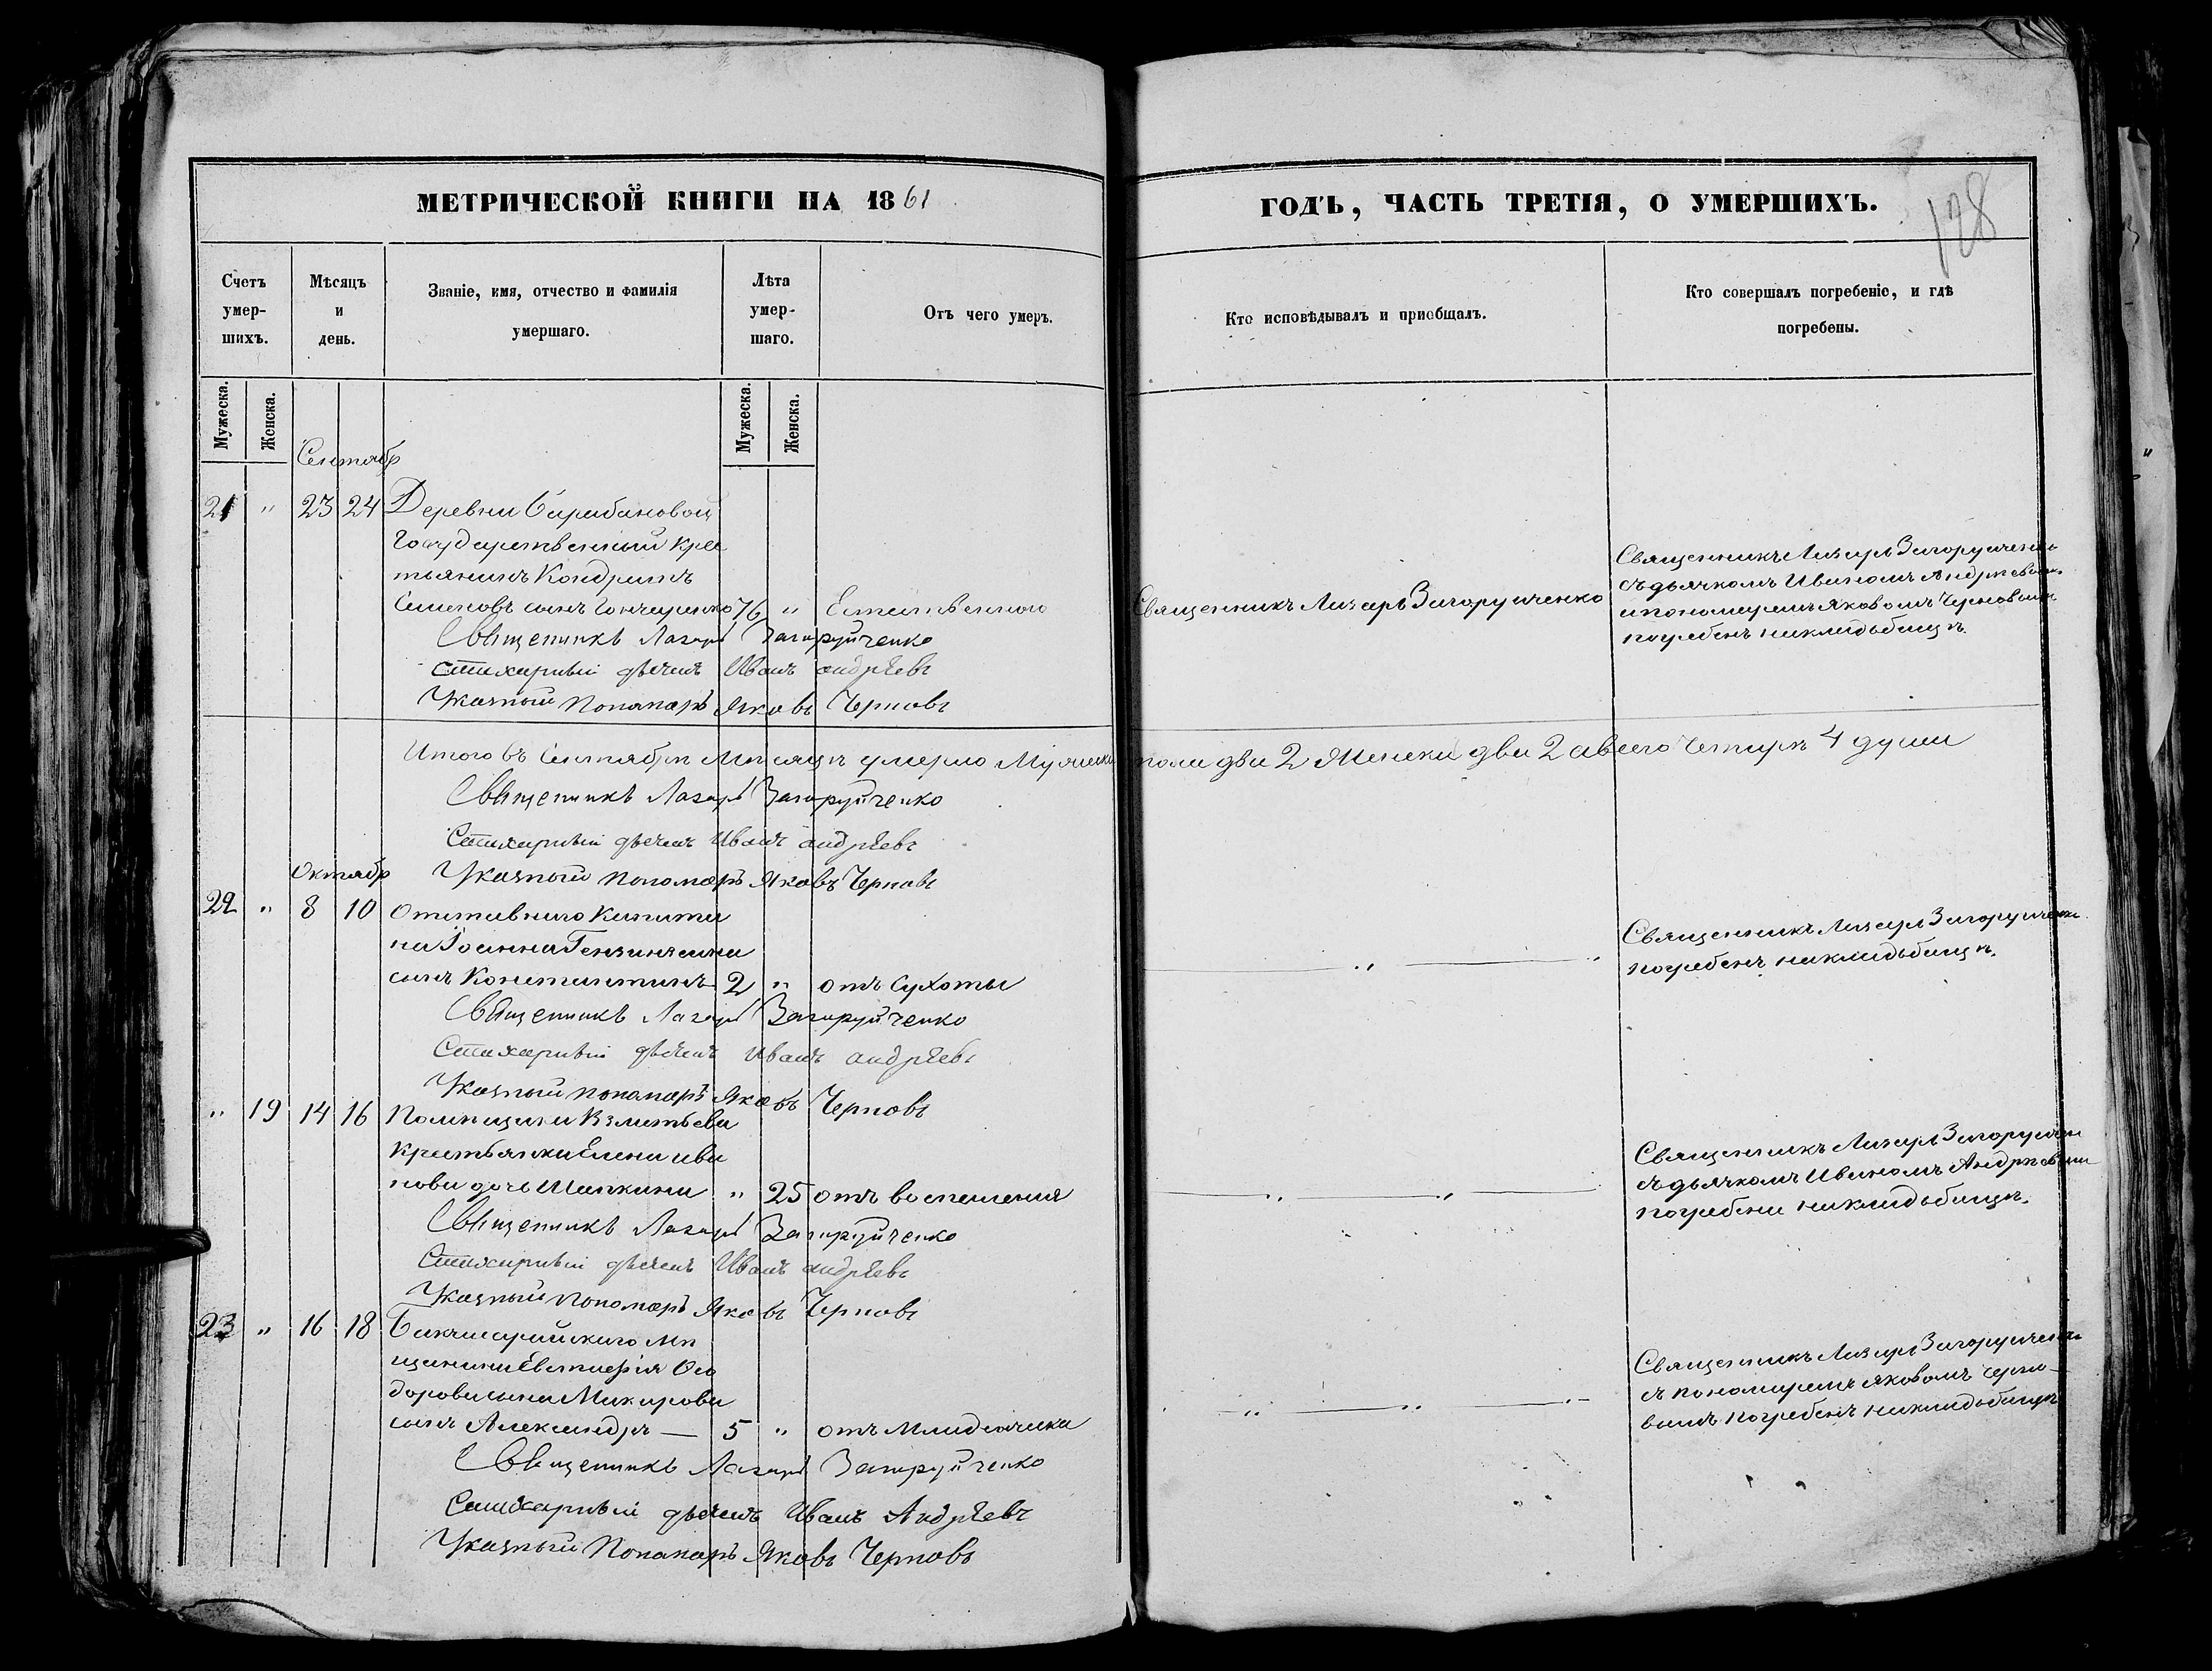 МЕТРИЧЕСКОЙ КНИГИ НА 1861
ГОДЪ, ЧАСТЬ ТРЕТІЯ, О УМЕРШИХЪ.
128
Счетъ умер- шихъ.
Мѣсяцъ и день.
Званіе, имя, отчество и фамилія умершаго.
Лѣта умер- шаго.
Отъ чего умеръ.
Кто исповѣдывалъ и пріобщалъ.
Кто совершалъ погребеніе, и гдѣ погребены.
Мужеска.
Женска.
Мужеска.
Женска.
Сентябр
21 " 23 24 Деревни Барабановой
Государственный Крес
тьянинъ Кондратъ
Семеновъ сынъ Гончаренко 76 " Естественно
Священникъ Лазарь Загоруйченко
Священникъ Лазарь Загоруйченко
съ дьячкомъ Иваномъ Андреевымъ
и пономаремъ Яковомъ Черновымъ
погребенъ на кладьбищѣ.
Священникъ Лазарь Загоруйченко
Стихарный дьячекъ Иванъ Андрѣевъ
Указный Пономарь Яковъ Черновъ
Итого въ Сентябрѣ Мѣсяцѣ умерло Мужеска пола два 2 Женска два 2 а всего Четырѣ 4 души
Священникъ Лазарь Загоруйченко
Стихарный дьячекъ Иванъ Андрѣевъ
Указный Пономарь Яковъ Черновъ
Октябр
22 " 8 10 Отставнаго Капита
на Іоанна
сынъ Константинъ 2 " отъ Сухоты
Священникъ Лазарь Загоруйченко
погребенъ на кладьбищѣ.
Священникъ Лазарь Загоруйченко
Стихарный дьячекъ Иванъ Андрѣевъ
Указный Пономарь Яковъ Черновъ
" 19 14 16 Помѣщика
Крестьянка Елена Ива
нова дочь Шапкина " 25 отъ воспаления
Священникъ Лазарь Загоруйчен
съ дьячкомъ Иваномъ Андреевым
погребена на кладьбищѣ.
Священникъ Лазарь Загоруйченко
Стихарный дьячекъ Иванъ Андрѣевъ
Указный Пономарь Яковъ Черновъ
23 " 16 18 Бакчисарайскаго мѣ
щанина Евстафія Ѳео
дорова сына Макарова
сынъ Александръ — 5 " отъ Младенчика
Священникъ Лазарь Загоруйченко
съ пономаремъ Яковомъ Черно-
вымъ погребенъ на кладьбищѣ
Священникъ Лазарь Загоруйченко
Стихарный дьячекъ Иванъ Андрѣевъ
Указный Пономарь Яковъ Черновъ